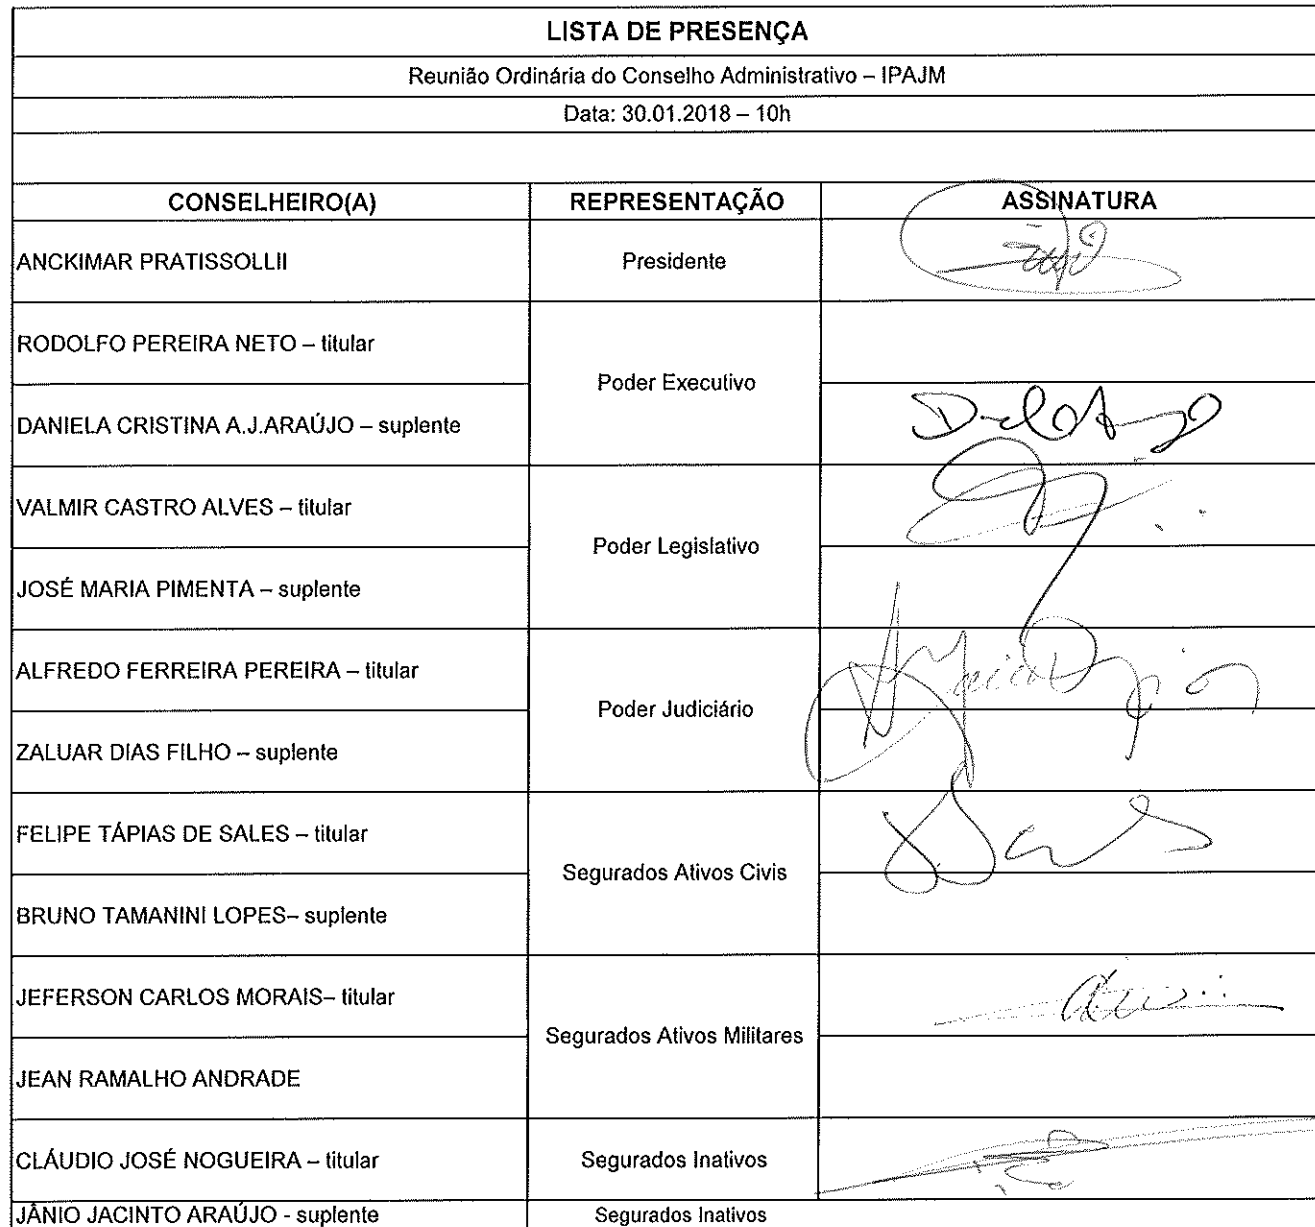 LISTA DE PRESENÇA
Reunião Ordinária do Conselho Administrativo – IPAJM
Data: 30.01.2018 – 10h
CONSELHEIRO(A) REPRESENTAÇÃO ASSINATURA
ANCKIMAR PRATISSOLLII Presidente
RODOLFO PEREIRA NETO – titular
Poder Executivo
DANIELA CRISTINA A.J.ARAÚJO – suplente
VALMIR CASTRO ALVES – titular
Poder Legislativo
JOSÉ MARIA PIMENTA – suplente
ALFREDO FERREIRA PEREIRA – titular
Poder Judiciário
ZALUAR DIAS FILHO – suplente
FELIPE TÁPIAS DE SALES – titular
Segurados Ativos Civis
BRUNO TAMANINI LOPES– suplente
JEFERSON CARLOS MORAIS– titular
Segurados Ativos Militares
JEAN RAMALHO ANDRADE
CLÁUDIO JOSÉ NOGUEIRA – titular Segurados Inativos
JÂNIO JACINTO ARAÚJO - suplente Segurados Inativos